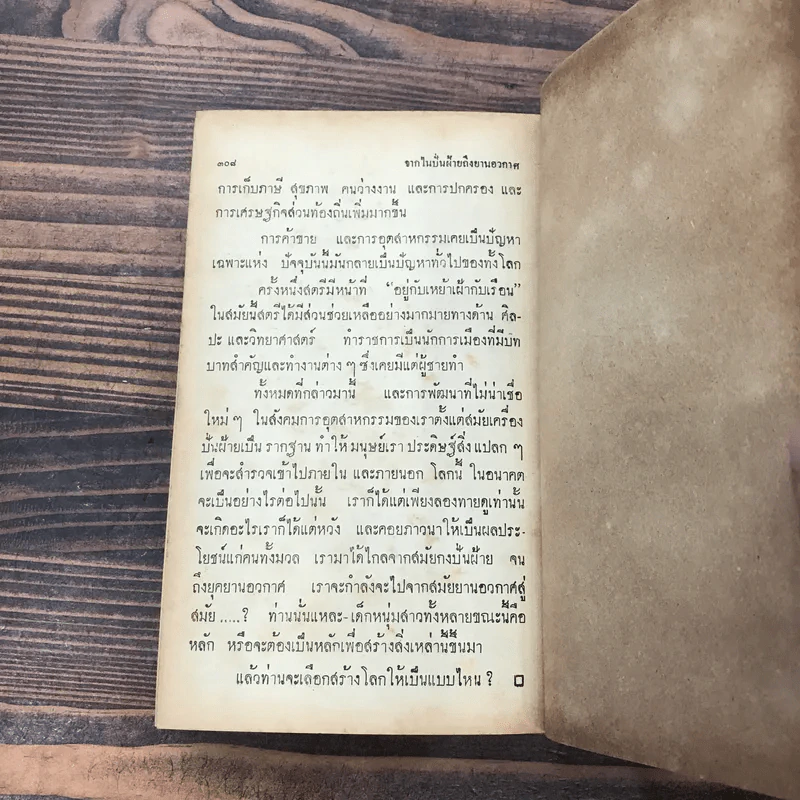 ๓๐๘ จากใบปั่นฝ้ายถึงยานอวกาศ
การเก็บภาษี สุขภาพ คนว่างงาน และการปกครอง และ
การเศรษฐกิจส่วนท้องถิ่นเพิ่มมากขึ้น
การค้าขาย และการอุตสาหกรรมเคยเป็นปัญหา
เฉพาะแห่ง ปัจจุบันนี้มันกลายเป็นปัญหาทั่วไปของทั้งโลก
ครั้งหนึ่งสตรีมีหน้าที่ "อยู่กับเหย้าเฝ้ากับเรือน"
ในสมัยนี้สตรีได้มีส่วนช่วยเหลืออย่างมากมายทางด้าน ศิล-
ปะ และวิทยาศาสตร์ ทำราชการเป็นนักการเมืองที่มีบท
บาทสำคัญและทำงานต่าง ๆ ซึ่งเคยมีแต่ผู้ชายทำ
ทั้งหมดที่กล่าวมานี้ และการพัฒนาที่ไม่น่าเชื่อ
ใหม่ ๆ ในสังคมการอุตสาหกรรมของเราตั้งแต่สมัยเครื่อง
ปั่นฝ้ายเป็น รากฐาน ทำให้ มนุษย์เรา ประดิษฐ์สิ่ง แปลก ๆ
เพื่อจะสำรวจเข้าไปภายใน และภายนอก โลกนี้ ในอนาคต
จะเป็นอย่างไรต่อไปนั้น เราก็ได้แต่เพียงลองทายดูเท่านั้น
จะเกิดอะไรเราก็ได้แต่หวัง และคอยภาวนาให้เป็นผลประ-
โยชน์แก่คนทั้งมวล เรามาได้ไกลจากสมัยกงปั่นฝ้าย จน
ถึงยุคยานอวกาศ เราจะกำลังจะไปจากสมัยยานอวกาศสู่
สมัย .....? ท่านนั่นแหละ- เด็กหนุ่มสาวทั้งหลายขณะนี้คือ
หลัก หรือจะต้องเป็นหลักเพื่อสร้างสิ่งเหล่านี้ขึ้นมา
แล้วท่านจะเลือกสร้างโลกให้เป็นแบบไหน ?